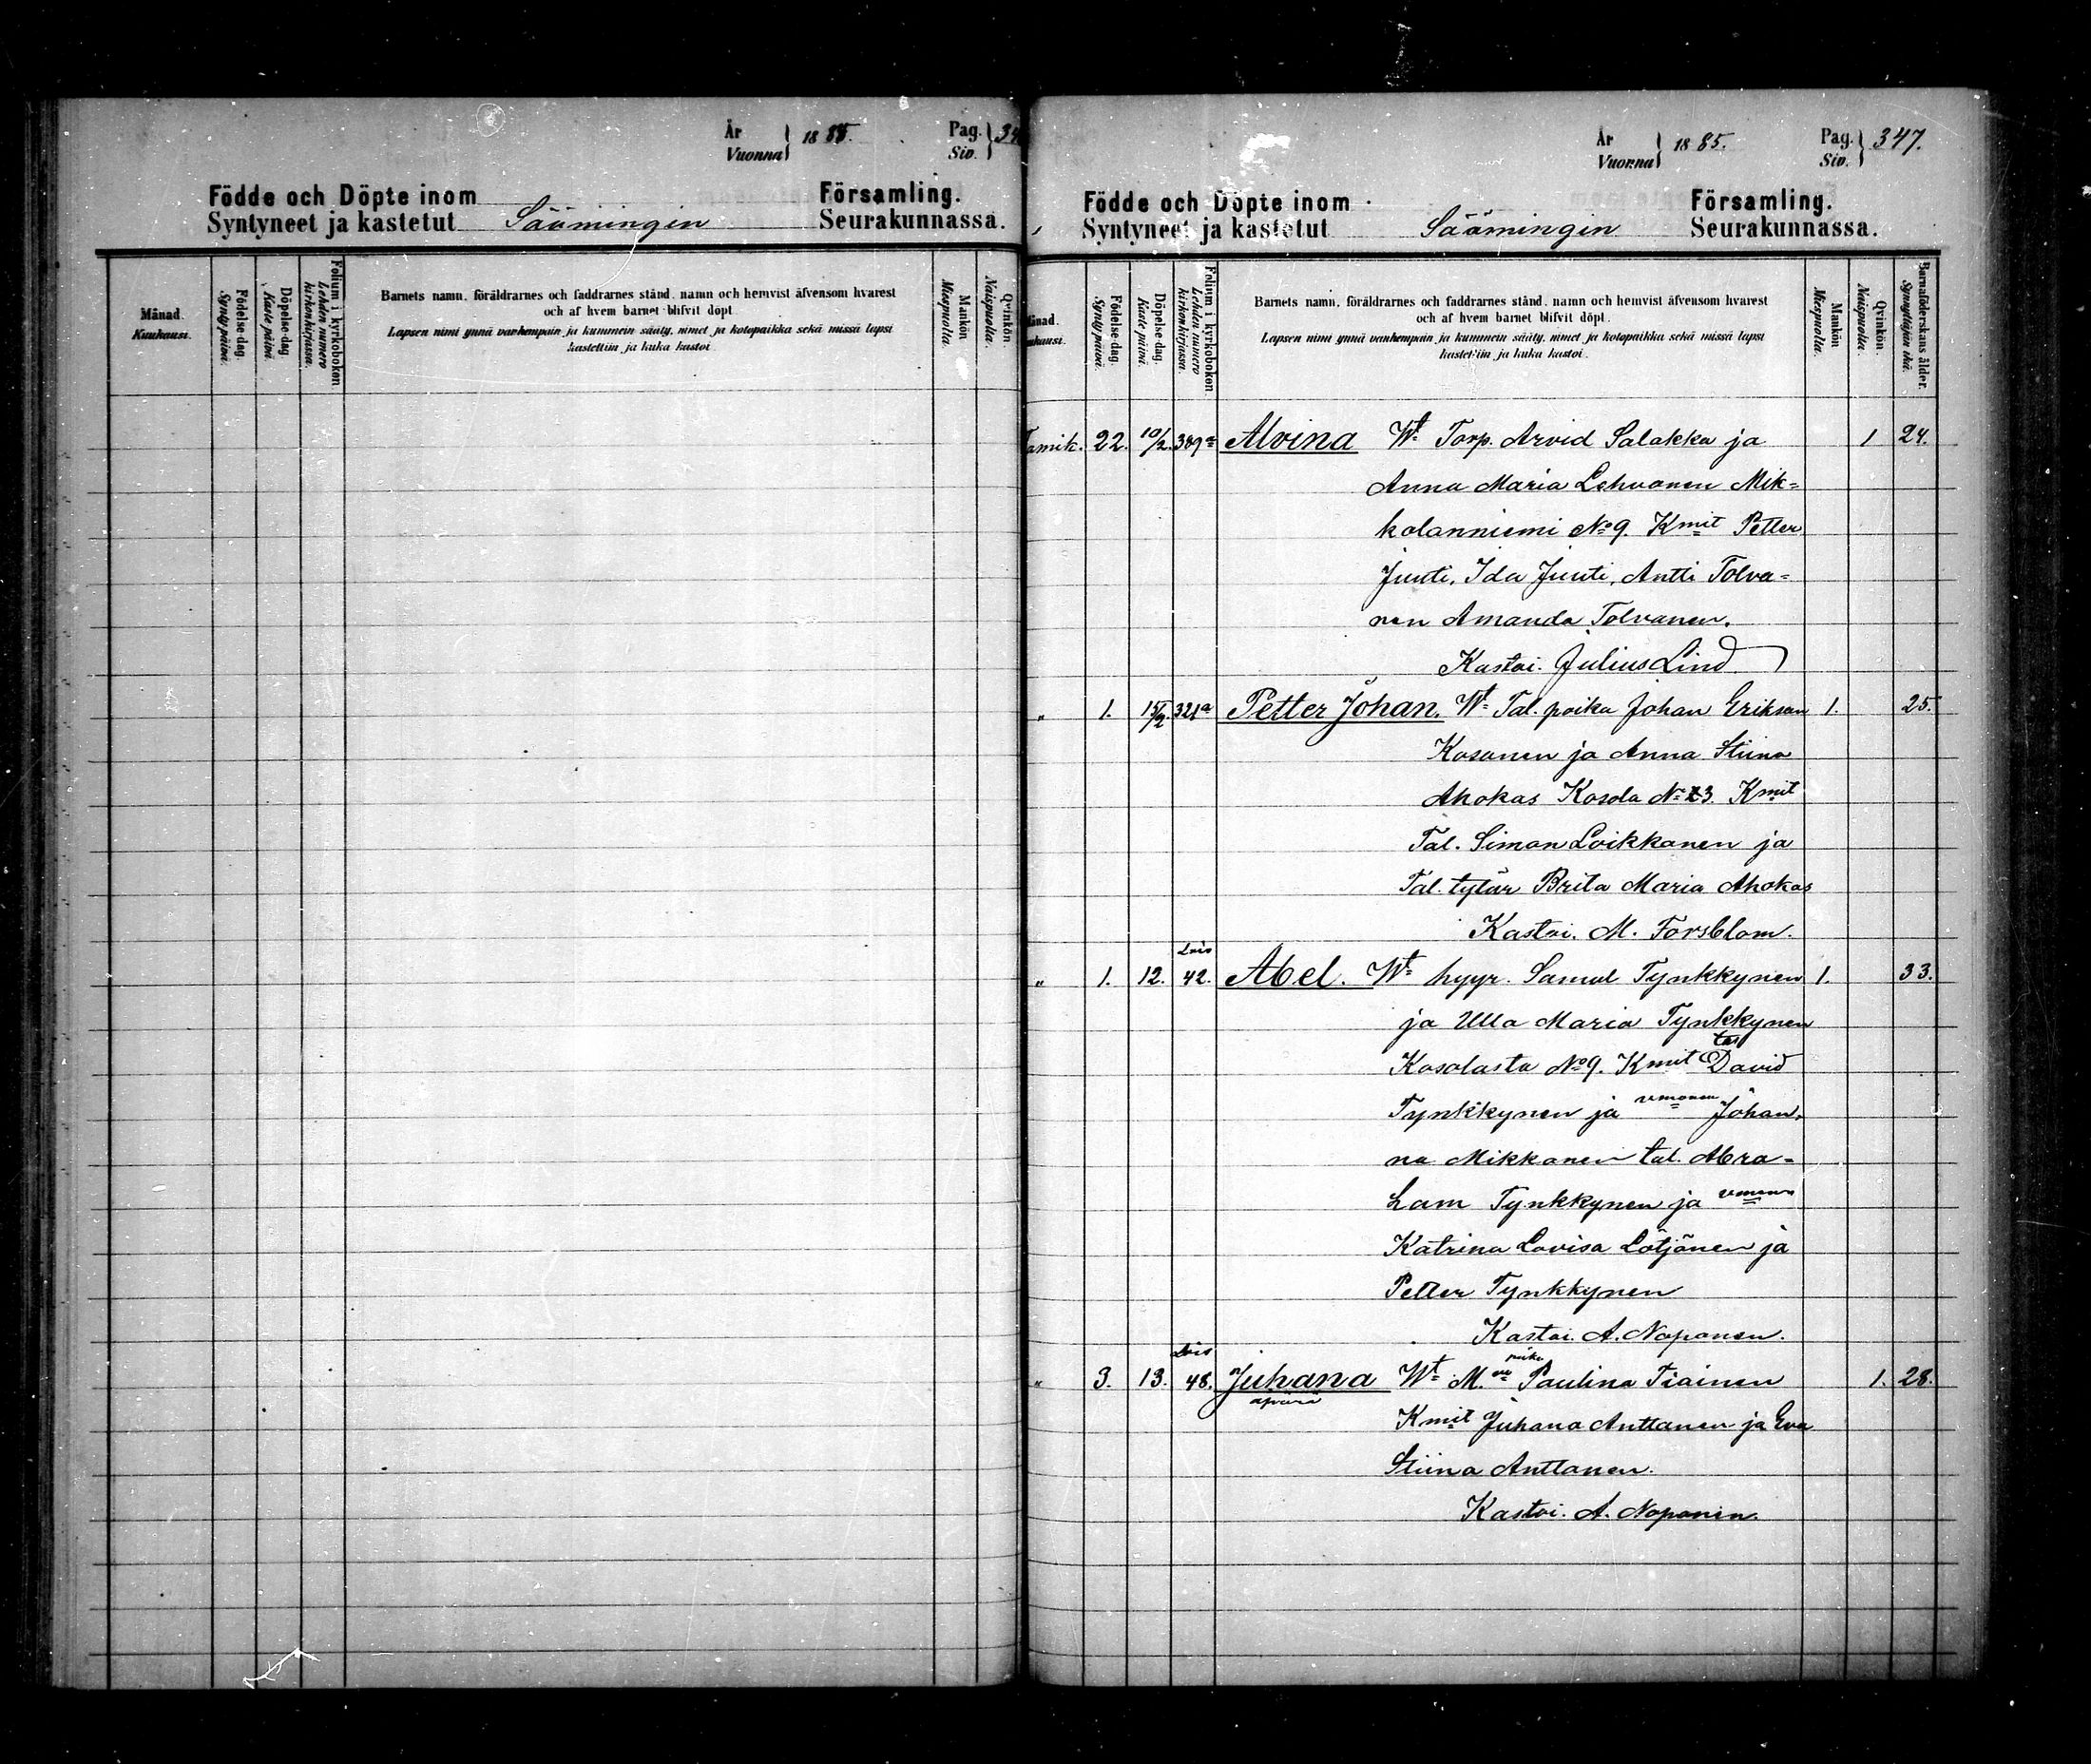 År
Vuonna 1885.
Pag.
Siv. 34
Födde och Döpte inom Församling.
Syntyneet ja kastetut Säämingin Seurakunnassa.
Månad. Kuukausi.
Födelse-dag. Syntypäivä.
Döpelse-dag. Kaste päivä.
Folium i kyrkoboken Lehden numero kirkonkirjassa.
Barnets namn, föräldrarnes och faddrarnes stånd, namn och hemvist äfvensom hvarest
och af hvem barnet blifvit döpt.
Lapsen nimi ynnä vanhempain ja kummein sääty, nimet ja kotopaikka sekä missä lapsi
kastettiin ja kuka kastoi.
Mankön Miespuolia.
Qvinkön. Naispuolia.
År
Vuonna 1885.
Pag.
Siv. 347.
Födde och Döpte inom Församling.
Syntyneet ja kastetut Säämingin Seurakunnassa.
ånad. ukausi.
Födelse-dag. Syntypäivä.
Döpelse-dag. Kaste päivä.
Folium i kyrkoboken Lehden numero kirkonkirjassa.
Barnets namn, föräldrarnes och faddrarnes stånd, namn och hemvist äfvensom hvarest
och af hvem barnet blifvit döpt.
Lapsen nimi ynnä vanhempain ja kummein sääty, nimet ja kotopaikka sekä missä lapsi
kastettiin ja kuka kastoi.
Mankön Miespuolia.
Qvinkön. Naispuolia.
Barnaföderskans ålder. Synnyttäjän ikä.
Tamik. 22. 10/2. 389a Alvina Wt Torp. Arvid Salakka ja 1 24.
Anna Maria Lehvonen Mik=
kolanniemi No 9. Kmit Petter
Juuti, Ida Juuti, Antti Tolva=
nen Amanda Tolvanen.
Kastoi. Julius Lind
" 1. 15/2. 321a Petter Johan. Wt Tal. poika Johan Erikson 1. 25.
Kosonen ja Anna Stiina
Ahokas Kosola No 3. Kmit
Tal. Simon Loikkanen ja
Tal. tytär Brita Maria Ahokas
Kastoi. M. Forsblom.
Lois
" 1. 12. 42. Abel. Wt hyyr. Samul Tynkkynen 1. 33.
ja Ulla Maria Tynkkynen
Kosolasta No 9. Kmit tal David
Tynkkynen ja vmonsa Johan,
na Mikkonen tal. Abra=
ham Tynkkynen ja vmonsa
Katrina Lovisa Lötjönen ja
Petter Tynkkynen
Kastoi. A. Noponen.
Lois poika
" 3. 13. 48. Juhana Wt M. Paulina Tiainen 1. 28.
äpärä
Kmit Juhana Anttonen ja Eva
Stiina Anttonen.
Kastoi. A. Noponen.